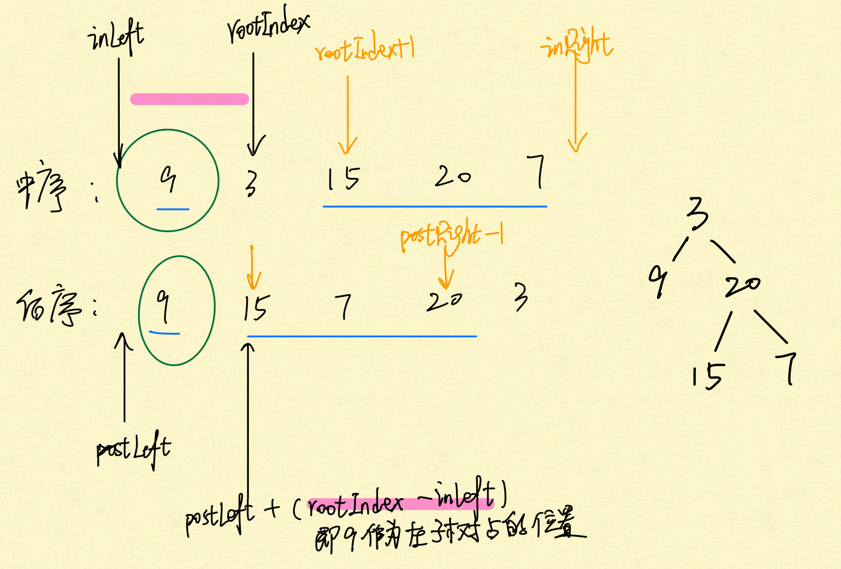 inLeft rootIndex rootIndex+1 inRight
中序： 9 3 15 20 7
postRight-1
后序： 9 15 7 20 3
postLeft
postLeft + (rootIndex - inLeft)
即9作为左子树对占的位置
3
9 20
15 7